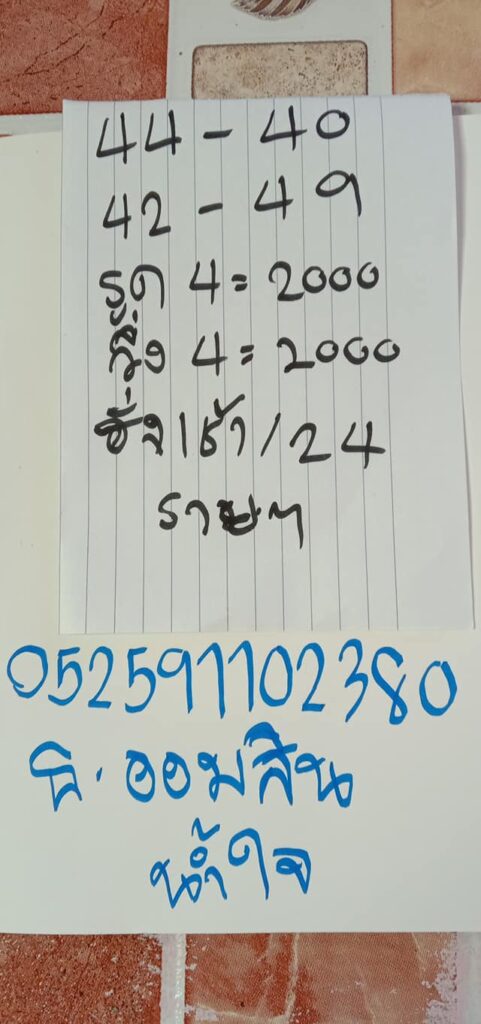 44 - 40
42 - 49
รูด 4 = 2000
วิ่ง 4 = 2000
เช้า / 24
052591102380
ธ. ออมสิน
น้ำใจ